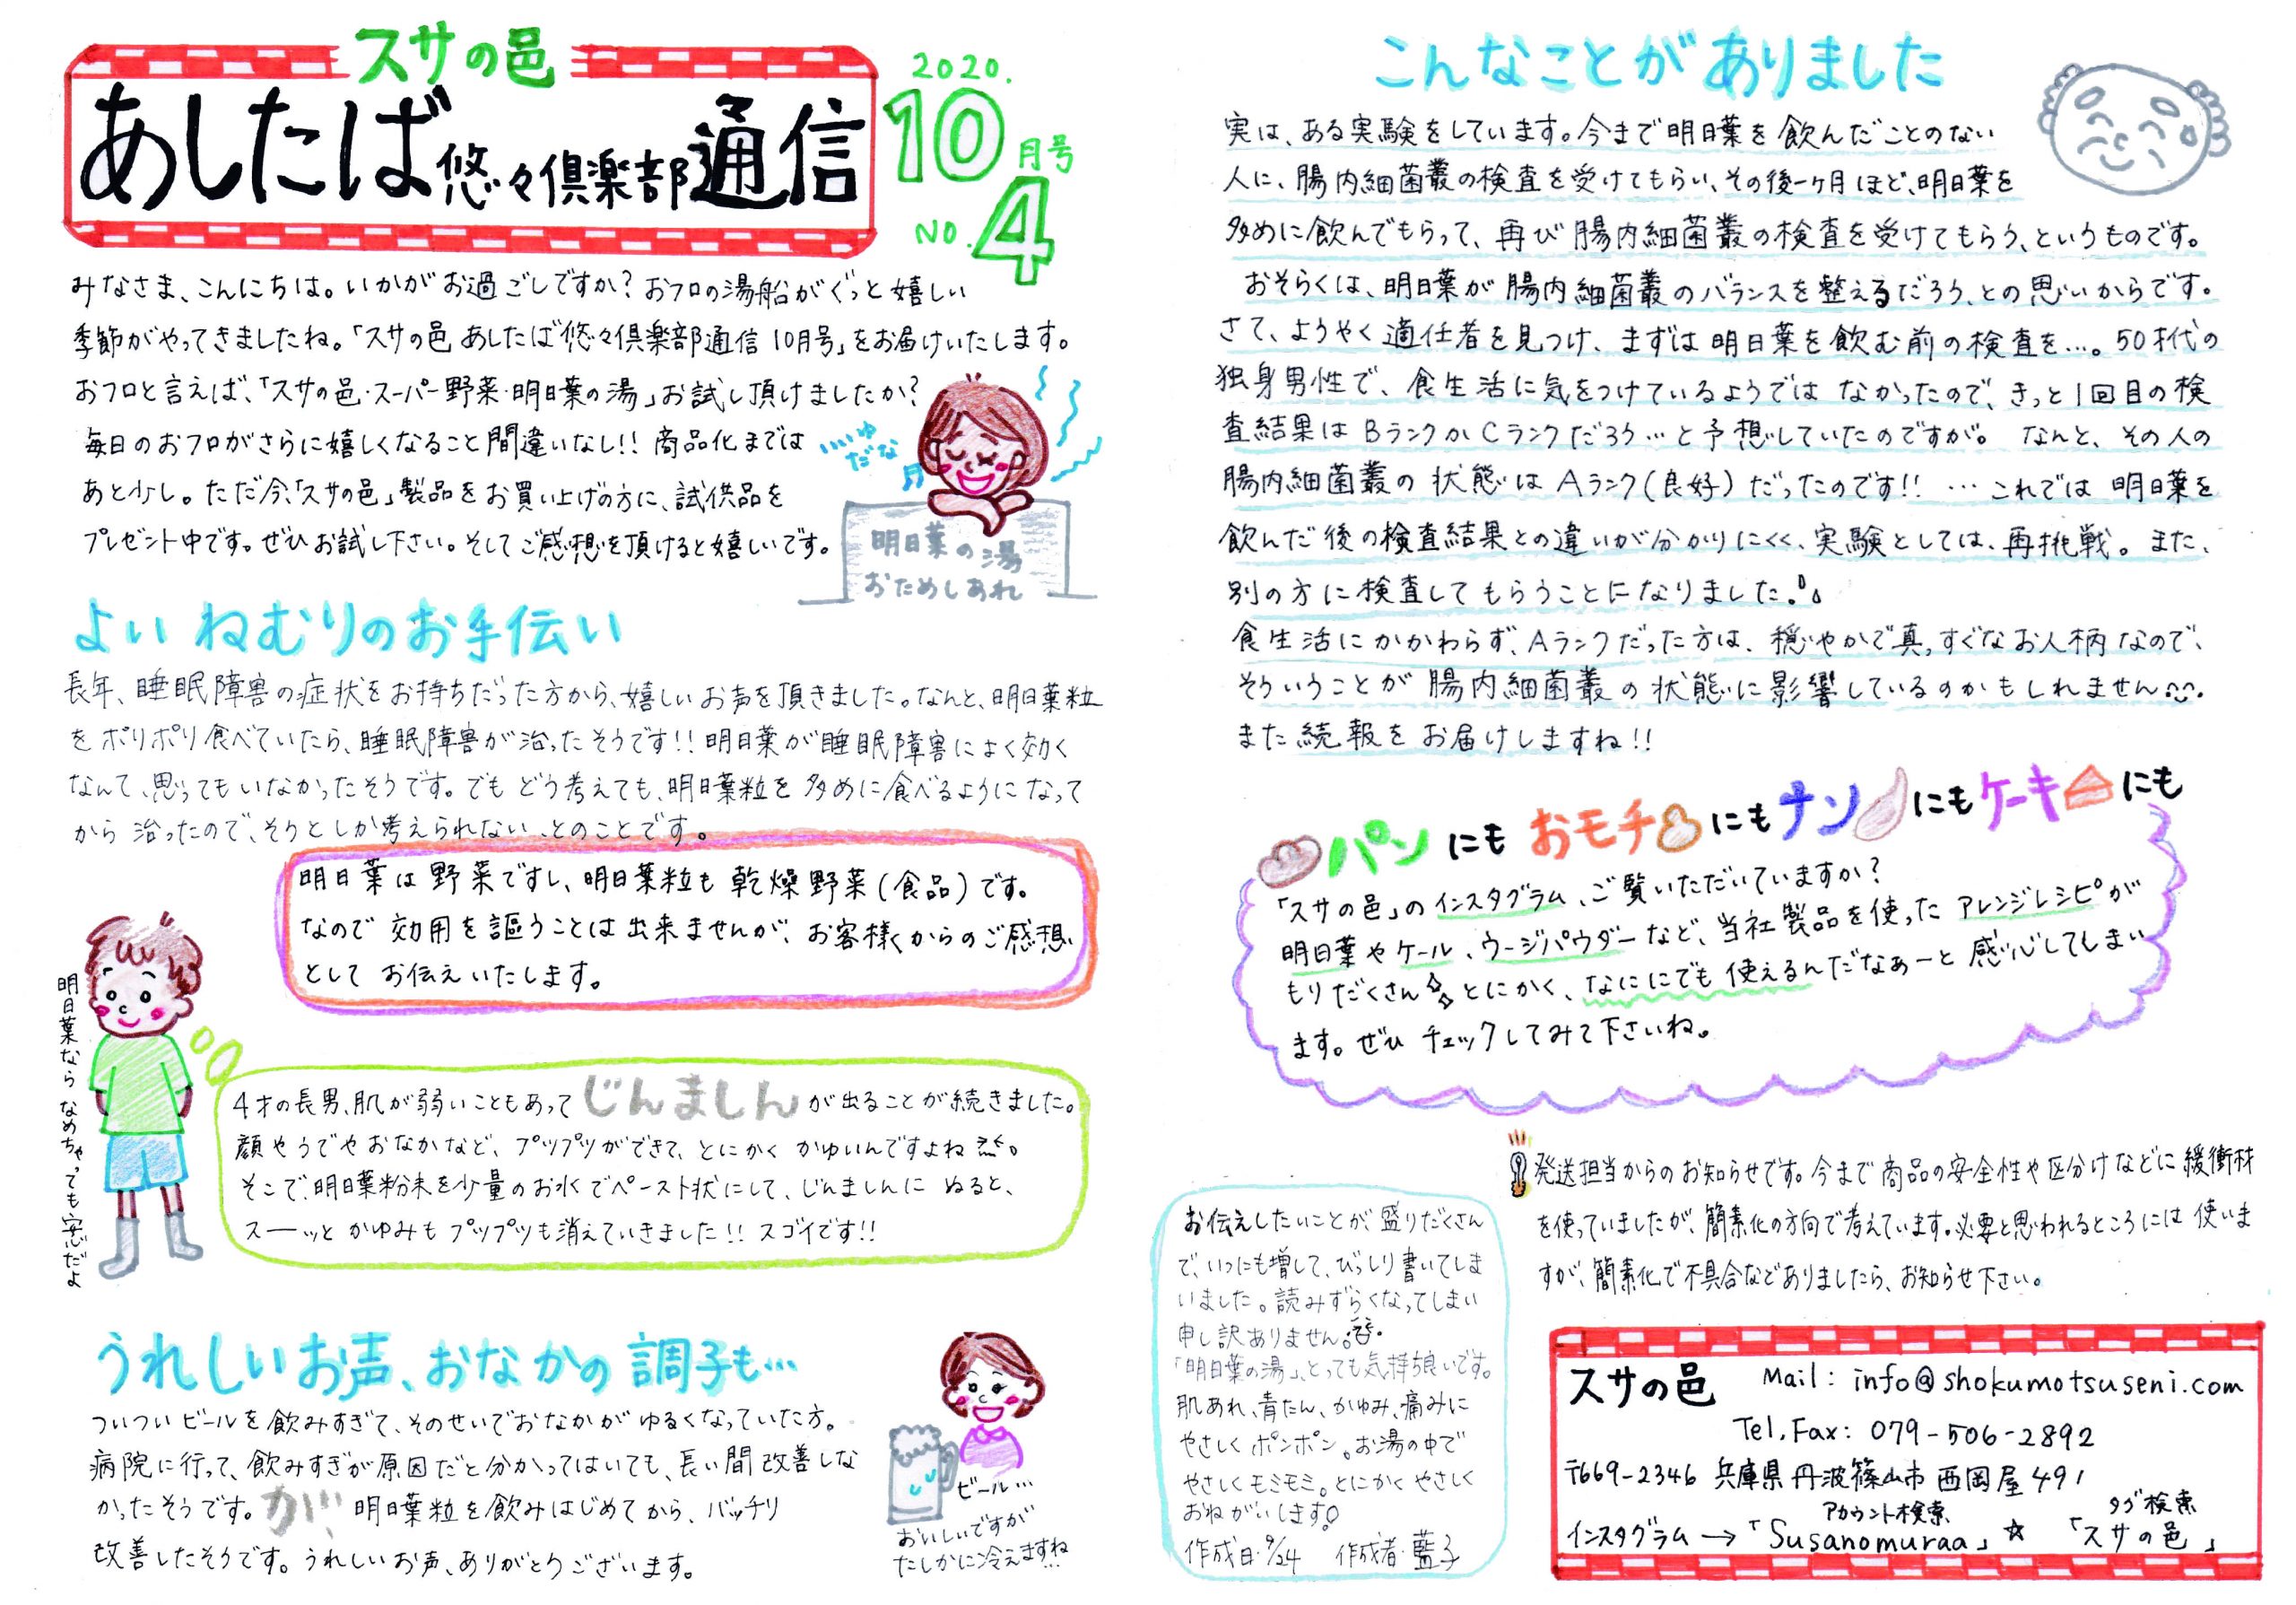 スサの邑
あしたば悠々倶楽部通信
2020.
10月号
NO.4
みなさま、こんにちは。いかがお過ごしですか?おフロの湯船がぐっと嬉しい
季節がやってきましたね。「スサの邑 あしたば悠々倶楽部通信 10月号」をお届けいたします。
おフロと言えば、「スサの邑・スーパー野菜・明日葉の湯」お試し頂けましたか?
毎日のおフロがさらに嬉しくなること間違いなし!! 商品化までは
あと少し。ただ今、「スサの邑」製品をお買い上げの方に、試供品を
プレゼント中です。ぜひお試し下さい。そしてご感想を頂けると嬉しいです。
いいゆ
だな
明日葉の湯
おためしあれ
よい ねむりのお手伝い
長年、睡眠障害の症状をお持ちだった方から、嬉しいお声を頂きました。なんと、明日葉粒
をポリポリ食べていたら、睡眠障害が治ったそうです!! 明日葉が睡眠障害によく効く
なんて、思ってもいなかったそうです。でもどう考えても、明日葉粒を多めに食べるようになって
から治ったので、そうとしか考えられない、とのことです。
明日葉は野菜ですし、明日葉粒も乾燥野菜(食品)です。
なので効用を謳うことは出来ませんが、お客様からのご感想
としてお伝えいたします。
明日葉ならなめちゃっても安心だよ
4才の長男、肌が弱いこともあってじんましんが出ることが続きました。
顔やうでやおなかなど、プツプツができて、とにかくかゆいんですよね
そこで、明日葉粉末を少量のお水でペースト状にして、じんましんにぬると、
スーーッとかゆみもプツプツも消えていきました!! スゴイです!!
うれしいお声、おなかの調子も…
ついついビールを飲みすぎて、そのせいでおなかがゆるくなっていた方。
病院に行って、飲みすぎが原因だと分かってはいても、長い間改善しな
かったそうです。が、明日葉粒を飲みはじめてから、バッチリ
改善したそうです。うれしいお声、ありがとうございます。
ビール…
おいしいですが
たしかに冷えますね…
こんなことがありました
実は、ある実験をしています。今まで明日葉を飲んだことのない
人に、腸内細菌叢の検査を受けてもらい、その後一ヶ月ほど、明日葉を
多めに飲んでもらって、再び腸内細菌叢の検査を受けてもらう、というものです。
おそらくは、明日葉が腸内細菌叢のバランスを整えるだろう、との思いからです。
さて、ようやく適任者を見つけ、まずは明日葉を飲む前の検査を…。50才代の
独身男性で、食生活に気をつけているようではなかったので、きっと1回目の検
査結果はBランクかCランクだろう…と予想していたのですが。なんと、その人の
腸内細菌叢の状態はAランク(良好)だったのです!! …これでは明日葉を
飲んだ後の検査結果との違いが分かりにくく、実験としては、再挑戦。また、
別の方に検査してもらうことになりました。
食生活にかかわらず、Aランクだった方は、穏やかで真っすぐなお人柄なので、
そういうことが腸内細菌叢の状態に影響しているのかもしれません
また続報をお届けしますね!!
パンにもおモチにもナンにもケーキにも
「スサの邑」のインスタグラム、ご覧いただいていますか?
明日葉やケール、ウージパウダーなど、当社製品を使ったアレンジレシピが
もりだくさん とにかく、なににでも使えるんだなぁーと感心してしまい
ます。ぜひチェックしてみて下さいね。
発送担当からのお知らせです。今まで商品の安全性や区分けなどに緩衝材
を使っていましたが、簡素化の方向で考えています。必要と思われるところには使いま
すが、簡素化で不具合などありましたら、お知らせ下さい。
お伝えしたいことが盛りだくさん
で、いつにも増して、びっしり書いてしま
いました。読みずらくなってしまい
申し訳ありません。
「明日葉の湯」、とっても気持ち良いです。
肌あれ、青たん、かゆみ、痛みに
やさしくポンポン。お湯の中で
やさしくモミモミ。とにかくやさしく
おねがいします
作成日・9/24 作成者・藍子
スサの邑 Mail: info@shokumotsuseni.com
Tel, Fax: 079-506-2892
〒669-2346 兵庫県丹波篠山市西岡屋491
アカウント検索 タグ検索
インスタグラム→「Susanomuraa」☆「スサの邑」